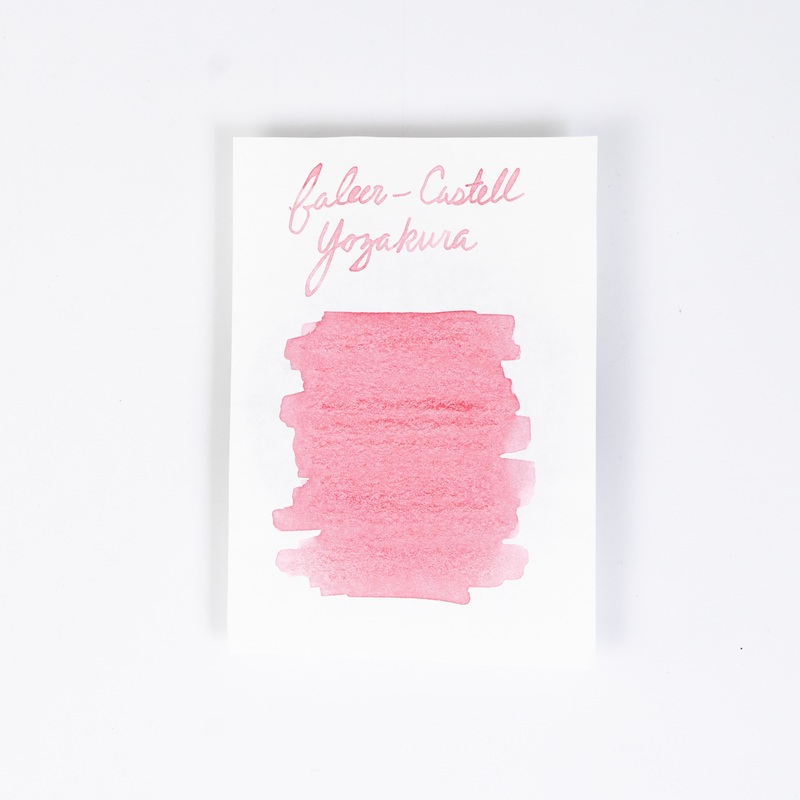 Faber-Castell
Yozakura